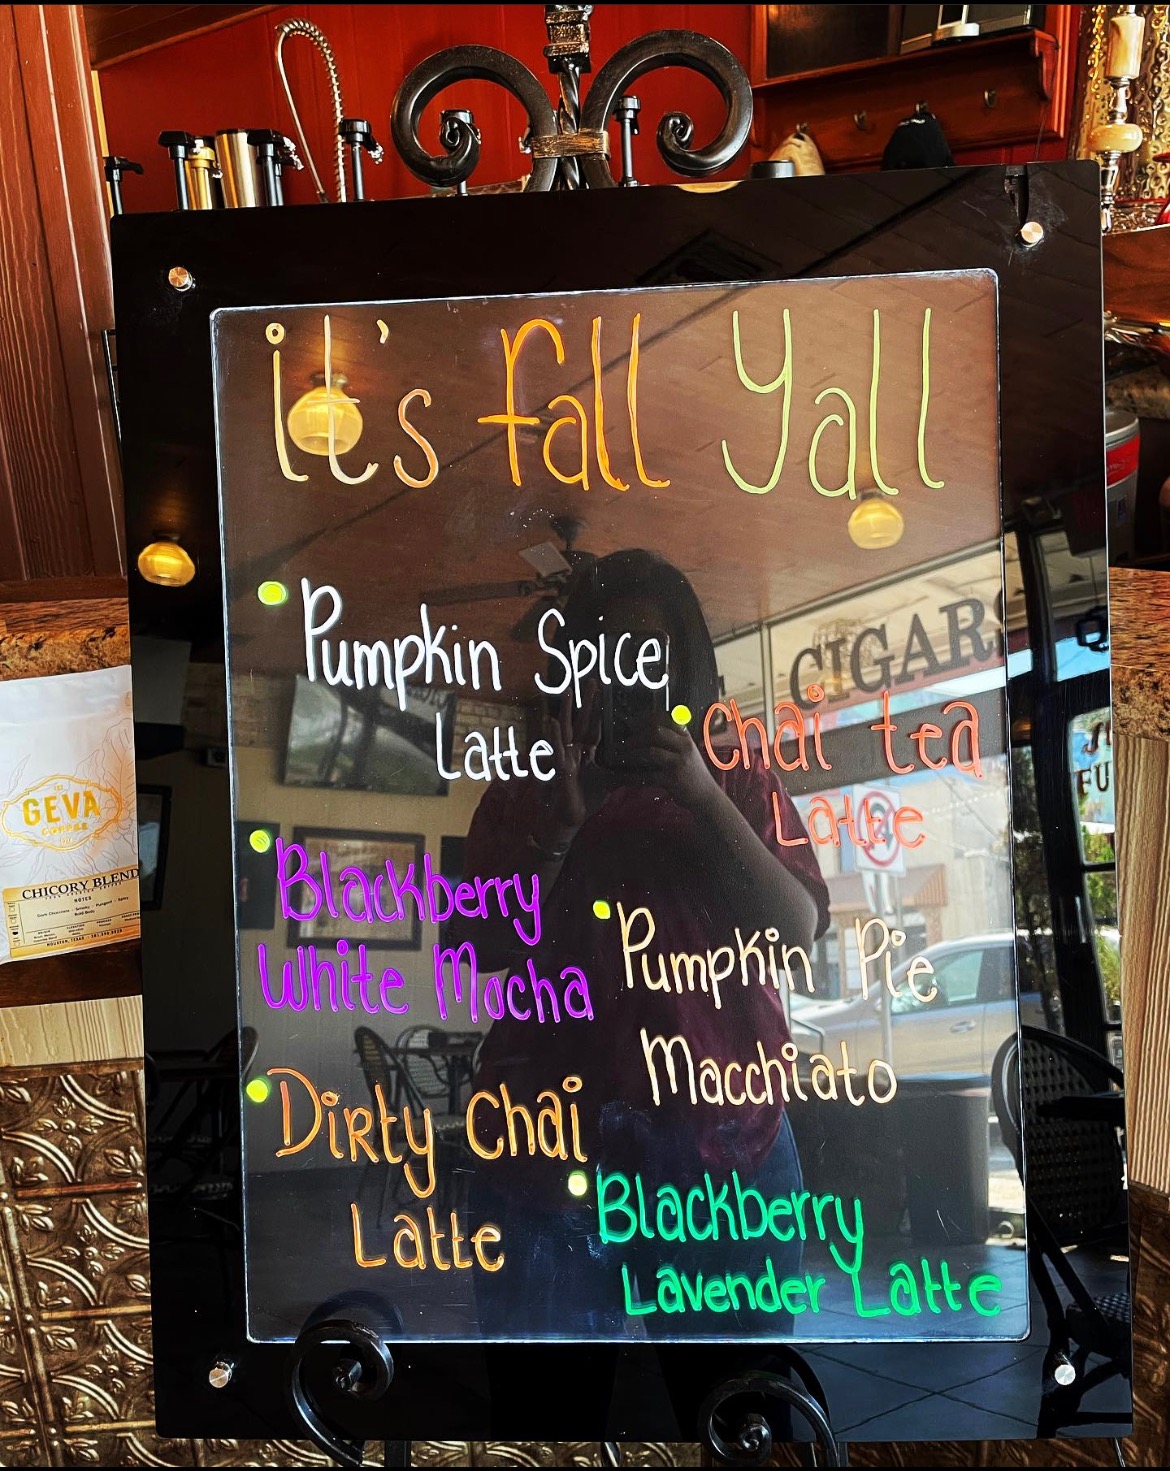 it's fall Yall
Pumpkin Spice
Latte
Chai tea
Latte
Blackberry
White Mocha
Pumpkin Pie
Macchiato
Dirty Chai
Latte
Blackberry
Lavender Latte
CIGARS
FU
GEVA
COFFEE
CHICORY BLEND
NOTES
HOUSTON, TEXAS